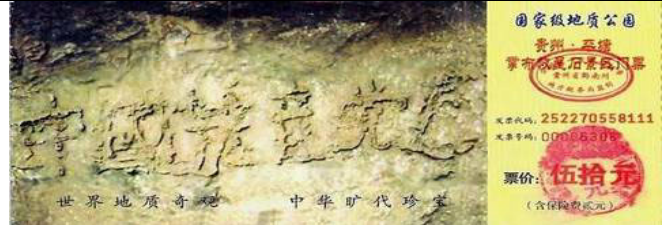 中國共产党亡
世界地质奇观 中华旷代珍宝
国家级地质公园
贵州·平塘
掌布救星石景区门票
贵州省黔南州
发票代码: 252270558111
发票号码: 00006308
票价: 伍拾元
(含保险费贰元)